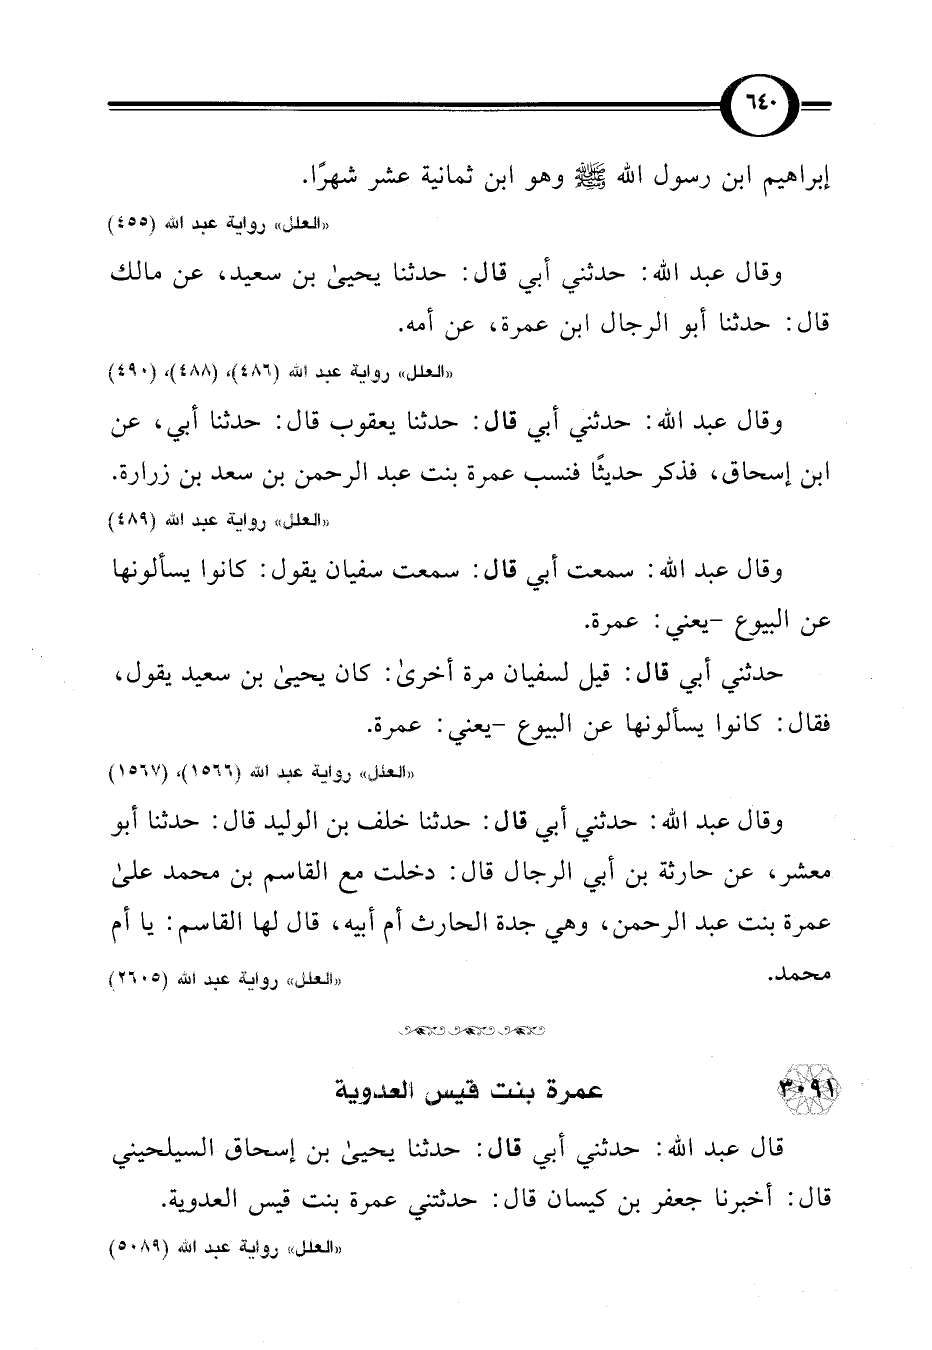 ٦٤٠
إبراهيم ابن رسول الله ﷺ وهو ابن ثمانية عشر شهرًا.
«العلل» رواية عبد الله (٤٥٥)
وقال عبد الله: حدثني أبي قال: حدثنا يحيىٰ بن سعيد، عن مالك
قال: حدثنا أبو الرجال ابن عمرة، عن أمه.
«العلل» رواية عبد الله (٤٨٦)، (٤٨٨)، (٤٩٠)
وقال عبد الله: حدثني أبي قال: حدثنا يعقوب قال: حدثنا أبي، عن
ابن إسحاق، فذكر حديثًا فنسب عمرة بنت عبد الرحمن بن سعد بن زرارة.
«العلل» رواية عبد الله (٤٨٩)
وقال عبد الله: سمعت أبي قال: سمعت سفيان يقول: كانوا يسألونها
عن البيوع -يعني: عمرة.
حدثني أبي قال: قيل لسفيان مرة أخرىٰ: كان يحيىٰ بن سعيد يقول،
فقال: كانوا يسألونها عن البيوع -يعني: عمرة.
«العلل» رواية عبد الله (١٥٦٦)، (١٥٦٧)
وقال عبد الله: حدثني أبي قال: حدثنا خلف بن الوليد قال: حدثنا أبو
معشر، عن حارثة بن أبي الرجال قال: دخلت مع القاسم بن محمد علىٰ
عمرة بنت عبد الرحمن، وهي جدة الحارث أم أبيه، قال لها القاسم: يا أم
محمد. «العلل» رواية عبد الله (٢٦٠٥)
٣٠٩١ عمرة بنت قيس العدوية
قال عبد الله: حدثني أبي قال: حدثنا يحيىٰ بن إسحاق السيلحيني
قال: أخبرنا جعفر بن كيسان قال: حدثتني عمرة بنت قيس العدوية.
«العلل» رواية عبد الله (٥٠٨٩)